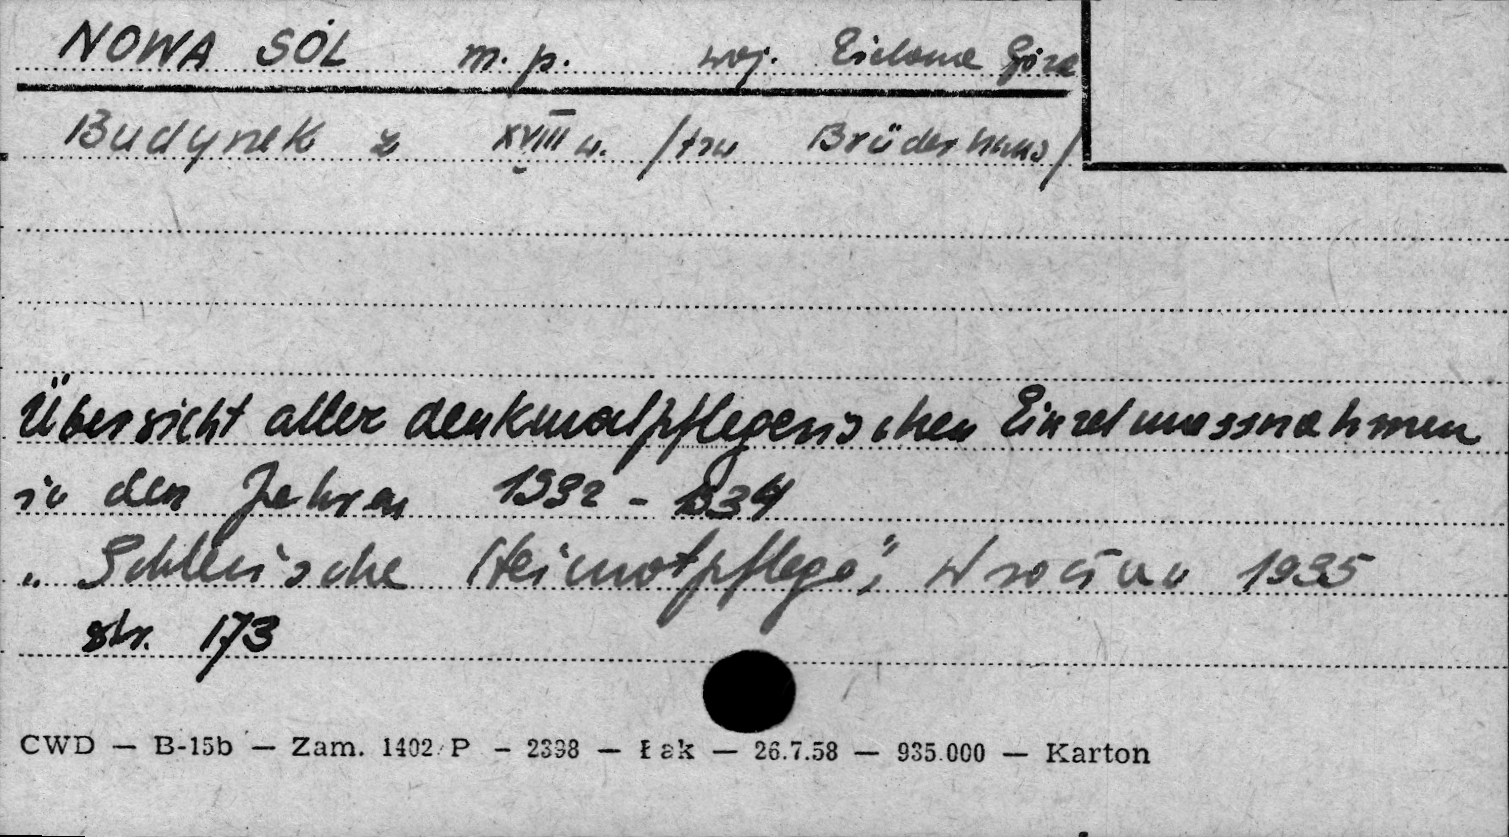 NOWA SÓL m. p. woj. Zielona Góra
Budynek z XVIII w. /tzw Brüderhaus/
Übersicht aller denkmalpflegerischen Einzelmassnahmen
in den Jahren 1932 - 1934
„Schlesische Heimatpflege", Wrocław 1935
str. 173
CWD — B-15b — Zam. 1402/P — 2398 — Łak — 26.7.58 — 935.000 — Karton